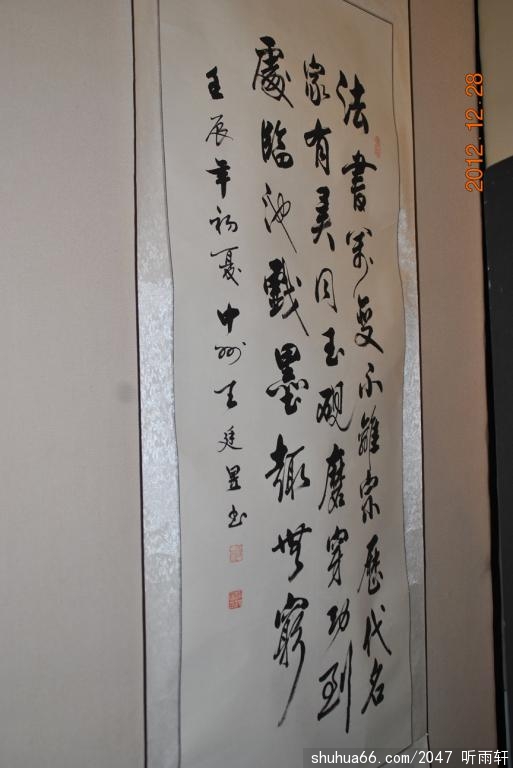 法書萬變不離宗歷代名
家有異同玉硯磨穿功到
處臨池戲墨趣無窮
壬辰年初夏中州王廷昱書
2012.12.28
shuhua66.com/2047 听雨轩